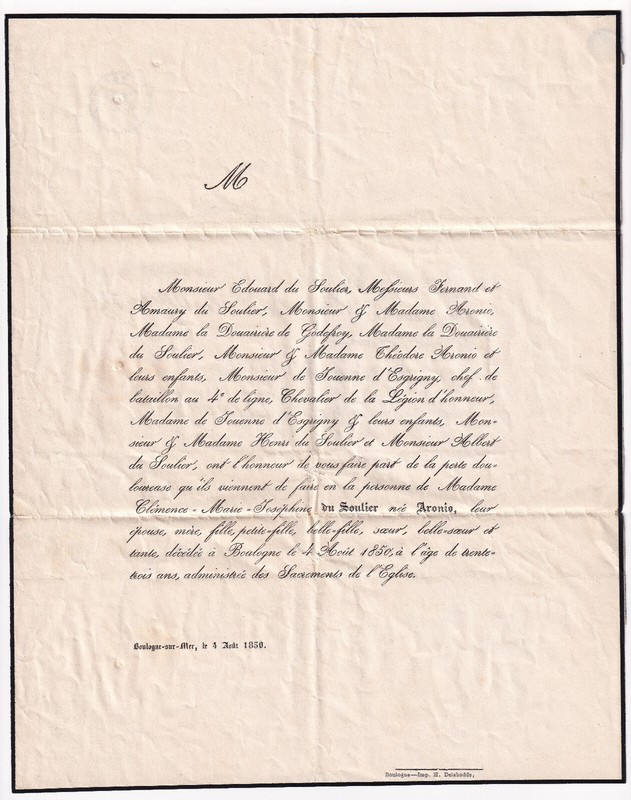 M
Monsieur Edouard du Soulier, Messieurs Fernand et
Amaury du Soulier, Monsieur & Madame Aronio,
Madame la Douairière de Godefroy, Madame la Douairière
du Soulier, Monsieur & Madame Théodore Aronio et
leurs enfants, Monsieur de Jouenne d'Esgrigny, chef de
bataillon au 4e de ligne, Chevalier de la Légion d'honneur,
Madame de Jouenne d'Esgrigny & leurs enfants, Mon-
sieur & Madame Henri du Soulier et Monsieur Albert
du Soulier, ont l'honneur de vous faire part de la perte dou-
loureuse qu'ils viennent de faire en la personne de Madame
Clémence-Marie-Joséphine du Soulier née Aronio, leur
épouse, mère, fille, petite-fille, belle-fille, sœur, belle-sœur et
tante, décédée à Boulogne le 4 Août 1850, à l'âge de trente-
trois ans, administrée des Sacrements de l'Eglise.
Boulogne-sur-Mer, le 4 Août 1850.
Boulogne—Imp. H. Delahodde,